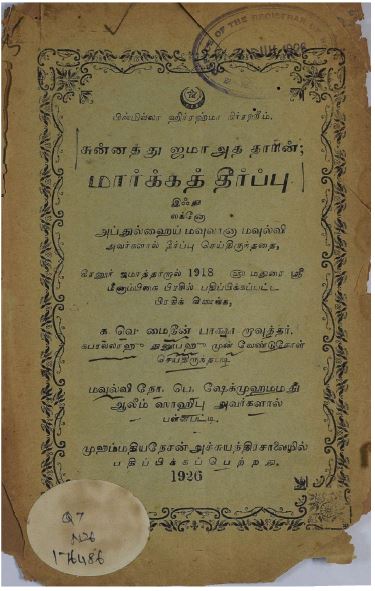 OF THE REGISTRAR OF
1926
பிஸ்மில்லா ஹிர்ரஹ்மா நிர்ரஹீம்.
சுன்னத்து ஜமாஅத் தாரின்;
மார்க்கத் தீர்ப்பு
இஃது
லக்னோ
அப்துல்ஹைய் மவுலானா மவுல்வி
அவர்களால் தீர்ப்பு செய்திருந்ததை,
கீரனூர் ஜமாத்தாரால் 1918 ௵ மதுரை ஸ்ரீ
மீனாம்பிகை பிரஸில் பதிப்பிக்கப்பட்ட
பிரதிக் கிணங்க,
க. வெ. மைதீன் பாஷா ருவுத்தர்.
முன் வேண்டுகோள்
செய்திருந்தபடி
மவுல்வி நோ. பெ. ஷேக்முஹம்மது
ஆலிம் ஸாஹிபு அவர்களால்
முஹம்மதியநேசன் அச்சுயந்திரசாலையில்
பதிப்பிக்கப்பெற்றது.
1926
Q7
N26
176486